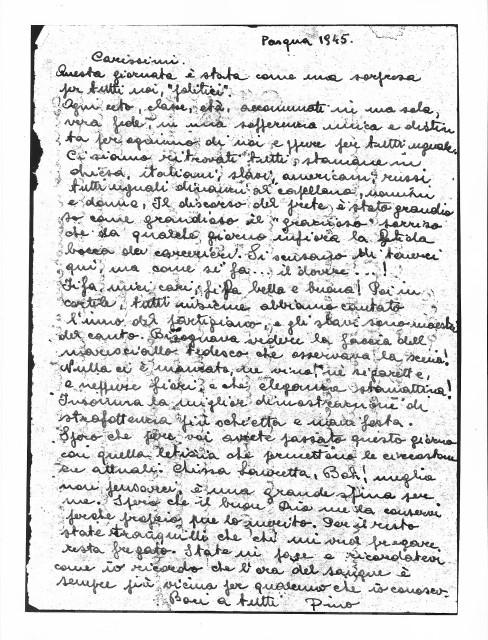 Pasqua 1945.
Carissimi.
Questa giornata è stata come una sorpresa
per tutti noi, "politici".
Ogni ceto, classe, età, accomunati in una sola,
vera fede, in una sofferenza unica e distin
ta per ognuno di noi e pure per tutti uguale.
Ci siamo ritrovati tutti, stamane in
chiesa, italiani, slavi, americani, russi
tutti uguali dinanzi al capellano, uomini
e donne, Il discorso del prete è stato grandio
so come grandioso il "grazioso" sorriso
che da qualche giorno infiora la fetida
bocca dei carcerieri. Si scusano di tenerci
qui, ma come si fa... il dovere...!
Fifa, miei cari, fifa bella e buona! Poi in
cortile, tutti insieme abbiamo cantato
l'inno del partigiano, e gli slavi sono maestri
del canto. Bisognava vedere la faccia dell
maresciallo tedesco che osservava la scena!
Nulla ci è mancato, ne vino, ne sigarette,
e neppure fiori, e che eleganza stamattina!
Insomma la miglior dimostrazione di
strafottenza più schietta e manifesta.
Spero che pure voi avrete passato questo giorno
con quella letizia che permettono le circostanze
attuali. Chissà Lauretta, Bah! meglio
non pensarci, è una grande spina per
me. Spero che il buon Dio me la conservi
perché proprio me lo merito. Per il resto
state tranquilli che chi mi vuol fregare
resta fregato. State in pace e ricordatevi
come io ricordo che l'ora del sangue è
sempre più vicina per qualcuno che io conosco.
Baci a tutti Pino